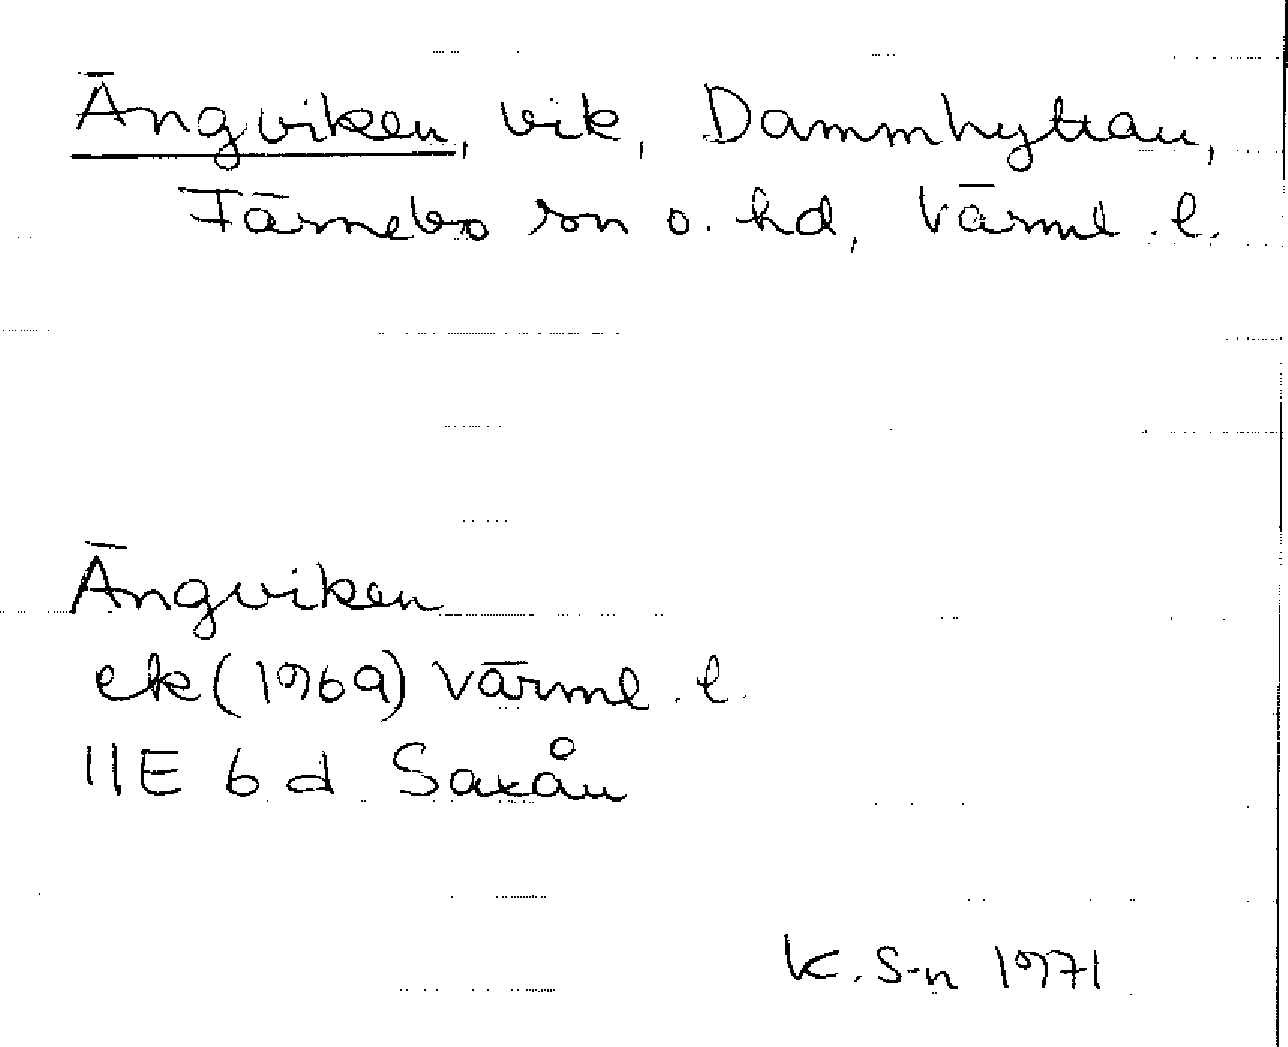 Ängviken, vik, Dammhyttan,
Färnebo sn o. hd, Värml. l.
Ängviken
ek (1969) Värml. l.
11E 6d Saxån
K. S-n 1971